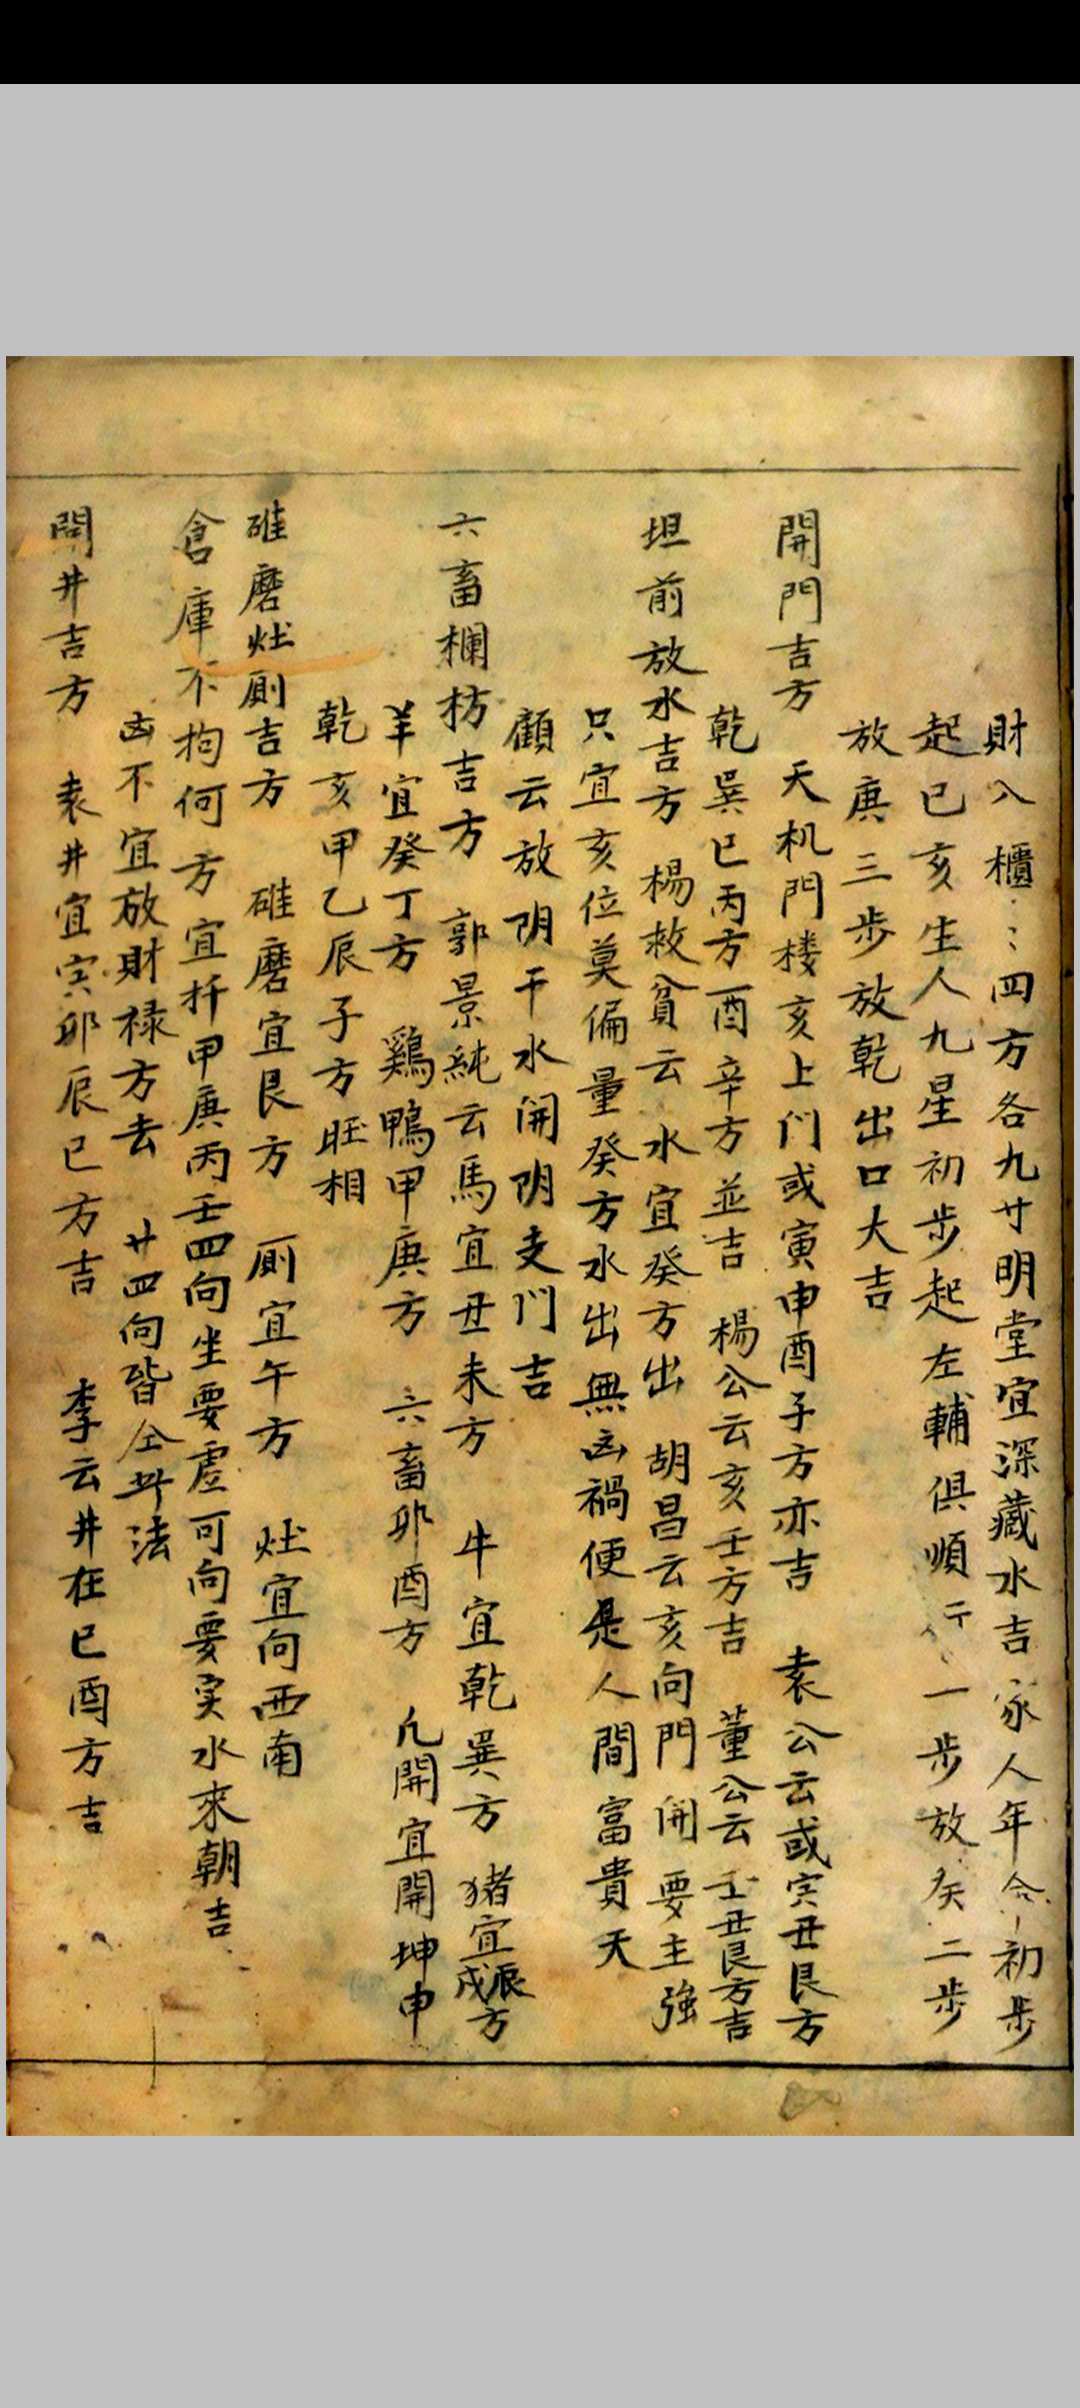 財入櫃〻四方各九寸明堂宜深藏水吉家人年命初步
起巳亥生人九星初步起左輔俱順一步放癸二步
放庚三步放乾出口大吉
開門吉方 天机門楼亥上门或寅申酉子方亦吉 袁公云或寅丑艮方
乾巽巳丙方酉辛方並吉 楊公云亥壬方吉 董公云壬丑艮方吉
坦前放水吉方 楊救貧云水宜癸方出 胡昌云亥向門開要主強
只宜亥位莫偏量癸方水出無凶禍便是人間富貴天
顧云放阴干水開阴支门吉
六畜欄枋吉方 郭景純云馬宜丑未方 牛宜乾巽方 猪宜辰戌方
羊宜癸丁方 鷄鴨甲庚方 六畜卯酉方 凢開宜開坤申
乾亥甲乙辰子方旺相
碓磨灶厠吉方 碓磨宜艮方 厠宜午方 灶宜向西南
倉庫不拘何方宜扦甲庚丙壬四向坐要虚可向要实水來朝吉
凶不宜放財禄方去 廿四向皆仝此法
開井吉方 袁井宜寅卯辰巳方吉 李云井在巳酉方吉